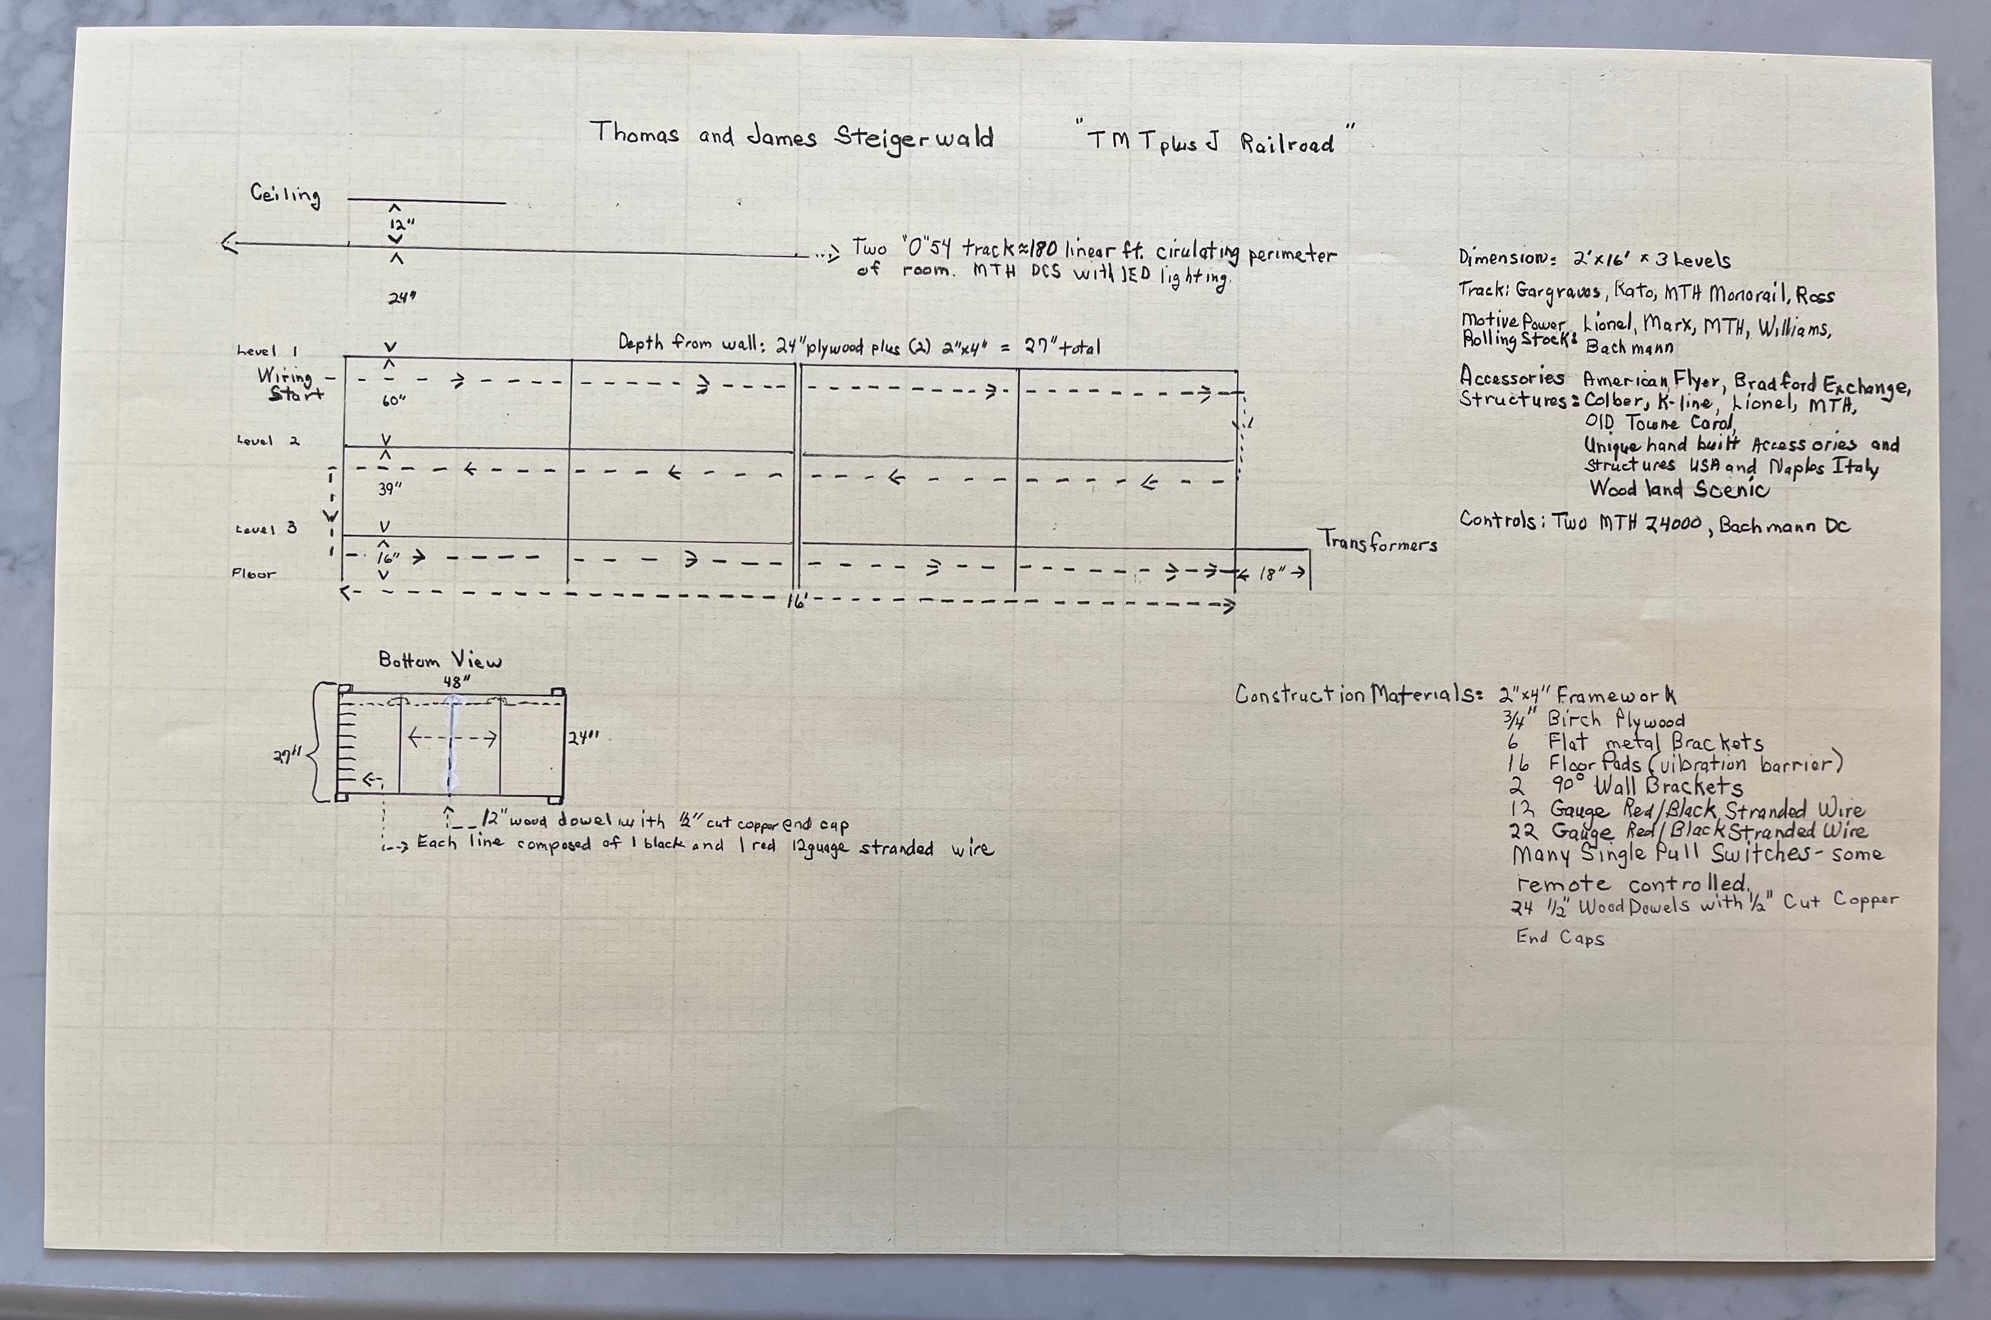 Thomas and James Steigerwald "TMT plus J Railroad"
Ceiling
12"
Two "O"54 track ≈ 180 linear ft. cirulating perimeter
of room. MTH DCS with lED lighting.
24"
Depth from wall: 24" plywood plus (2) 2"x4" = 27" total
Level 1
Wiring
Start
60"
Level 2
39"
Level 3
16"
Floor
Transformers
18"
16'
Dimension: 2'x16' x 3 Levels
Track: Gargraves, Kato, MTH Monorail, Ross
Motive Power Lionel, Marx, MTH, Williams,
Rolling Stock: Bachmann
Accessories American Flyer, Bradford Exchange,
Structures: Colber, K-line, Lionel, MTH,
OlD Towne Carol,
Unique hand built Accessories and
structures USA and Naples Italy
Woodland Scenic
Controls: Two MTH Z4000, Bachmann DC
Bottom View
48"
27"
24"
1/2" wood dowel with 1/2" cut copper end cap
Each line composed of 1 black and 1 red 12 guage stranded wire
Construction Materials: 2"x4" Framework
3/4" Birch Plywood
6 Flat metal Brackets
16 Floor Pads (vibration barrier)
2 90° Wall Brackets
12 Gauge Red/Black Stranded Wire
22 Gauge Red/Black Stranded Wire
Many Single Pull Switches - some
remote controlled.
24 1/2" Wood Dowels with 1/2" Cut Copper
End Caps